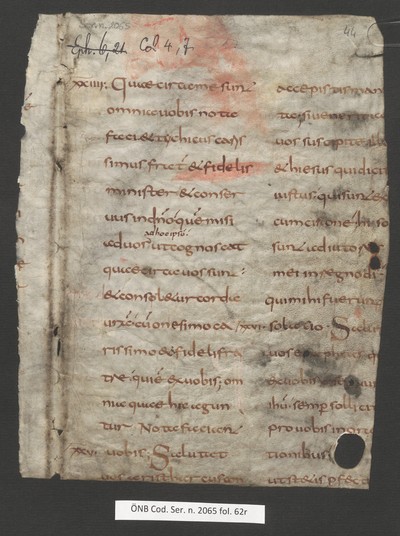 Ser.n. 2065
44
Eph. 6, 21 Col 4, 7
xxiiii: Quae circa me sunt
omnia uobis nota
faciet tychicus cariS
simus frater & fidelis
minister & conser
uus in dño quē misi
ad hoc ipsū
ad uos ut cognoscat
quae circa uos sunt
& consoletur corda
urā cū onesimo ca
rissimo & fideli fra
tre qui ē ex uobis om
nia quae hic agun
tur Nota facient
xxvi uobis Salutat
uos aristarcus con
accepistis man
uos suscipite illu
& hiesus qui dicit
iustus qui sunt ex
cumcisione hi so
sunt adiuto
mei in regno di
qui mihi fuerunt
xxvii solacio Salut
uos epaphras q
ex uobis
ihu semp sollicit
pro uobis in ora
tionibus
ut stetis pfec
ÖNB Cod. Ser. n. 2065 fol. 62r